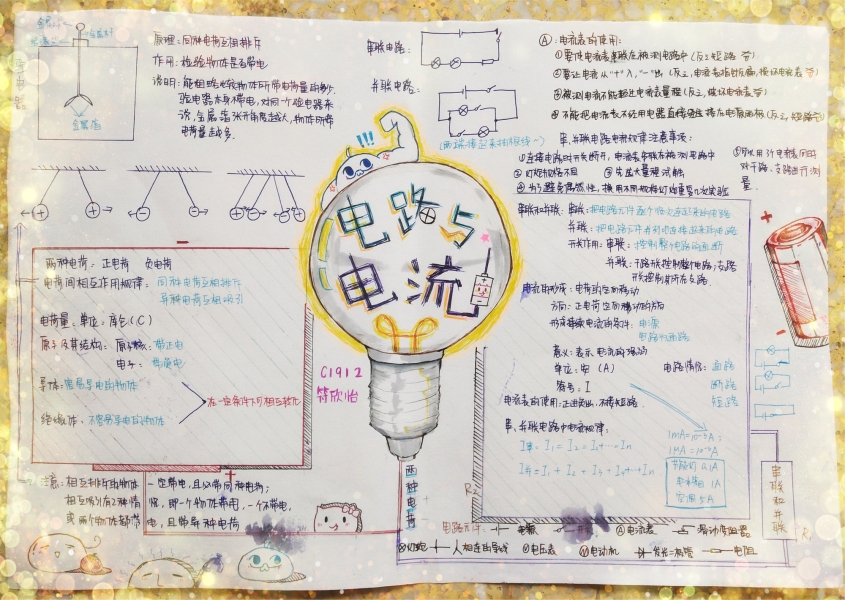 金属球
金属杆
金属箔
原理：同种电荷互相排斥
作用：检验物体是否带电
说明：能粗略比较物体所带电荷量的多少
验电器本身不带电，对同一个验电器来
说，金属箔张开角度越大，物体所带
电荷量越多.
串联电路：
并联电路：
(两端接起来抽根线~)
Ⓐ：电流表的使用：
①要使电流表串联在被测电路中(反之短路等)
②要让电流从"+"入，"-"出
③被测电流不能超过电流表量程(反之，烧坏电流表等)
④不能把电流表不经用电器直接连接在电源两极(反之，短路等)
串、并联电路电流规律注意事项：
①连接电路时开关断开，电流表串联在被测电路中
②灯泡规格不同
③先选大量程试触
④为了避免偶然性，换用不同规格灯泡重复几次实验
⑤可以用3个电流表同时
对干路、支路进行测
量.
!!!
电路与
电流
C1912
符欣怡
两种电荷：正电荷 负电荷
电荷间相互作用规律：同种电荷互相排斥
异种电荷互相吸引
电荷量：单位：库仑(C)
原子及其结构：原子核：带正电
电子：带负电
导体：容易导电的物体
绝缘体：不容易导电的物体
在一定条件下可相互转化
注意：相互排斥的物体一定带电，且必带同种电荷；
相互吸引有2种情况，即一个物体带电，一个不带电，
或两个物体都带电，且带异种电荷
两种电荷
串联和并联：串联：把电路元件逐个顺次连起来的电路
并联：把电路元件并列地连接起来的电路
开关作用：串联：控制整个电路的通断
并联：干路开关控制整个电路；支路
开关控制其所在支路.
电流的形成：电荷的定向移动
方向：正电荷定向移动的方向
形成持续电流的条件：电源
电路为通路
意义：表示电流的强弱
单位：安(A)
符号：I
电路情况：通路
断路
短路
电流表的使用：正进负出，不接短路.
串、并联电路中电流规律：
I串= I₁ = I₂ = I₃ = … In
I并= I₁ + I₂ + I₃ + I₄ + … + In
1mA=10⁻³A；
节能灯 0.1A
空调 5A
串联和并联
R₂
R₁
电路元件： 电源 开关 Ⓐ电流表 滑动变阻器
⊗灯泡 人相连的导线 Ⓥ电压表 Ⓜ电动机 发光二极管 电阻